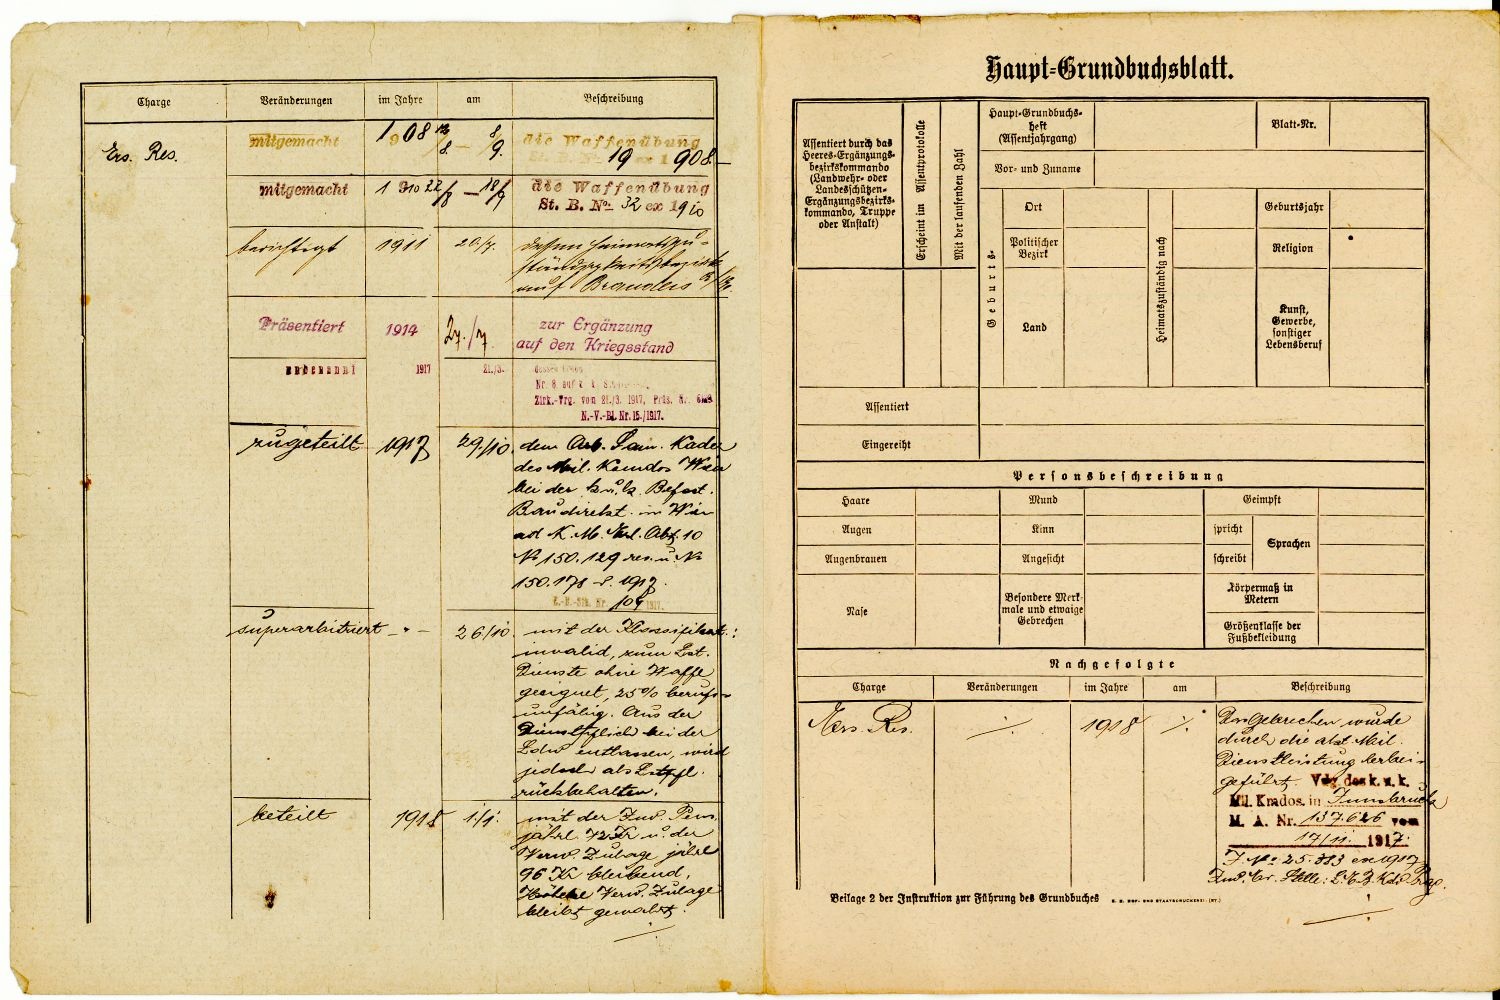 Charge Veränderungen im Jahre am Beschreibung
Ers. Res. mitgemacht 1908 12/8. – 8/9. die Waffenübung
St. B. No 19 ex 1908.
mitgemacht 1910 22/8 – 18/9 die Waffenübung
St. B. No. 32 ex 1910
berichtigt 1911 20./7. dessen Heimatszu-
ständigkeitsbezirk
auf Brandeis
Präsentiert 1914 27./7. zur Ergänzung
auf den Kriegsstand
1917 21./3.
Zirk.-Vrg. vom 21./3. 1917, Präs. Nr.
N.-V.-Bl. Nr. 15./1917.
zugeteilt 1917 29./10. dem Arb. Sam. Kader
des Mil. Komdos Wien
bei der k. u. k. Befest.
Baudirekt. in Wien
ad K. M. Erl. Abt. 10
No 150.129 res. u. No
150.178 1917.
109 1917.
superarbitriert –"– 26/10. mit der Klassifikat.:
invalid, zum Lst.
Dienste ohne Waffe
geeignet, 25% berufs-
unfähig. Aus der
Dienstpflicht bei der
Ldw entlassen, wird
jedoch als Lstpfl.
rückbehalten.
beteilt 1918 1./1. mit der Inv. Pens.
jährl. 72 Kr u. der
Verw. Zulage jährl
96 Kr bleibend,
Verw. Zulage
bleibt gewahrt.
Haupt-Grundbuchsblatt.
Assentiert durch das
Heeres-Ergänzungs-
bezirkskommando
(Landwehr- oder
Landesschützen-
Ergänzungsbezirks-
kommando, Truppe
oder Anstalt)
Erscheint im Assentprotokolle
Mit der laufenden Zahl
Haupt-Grundbuchs-
heft
(Assentjahrgang)
Blatt-Nr.
Vor- und Zuname
Geburts-
Ort
Politischer
Bezirk
Land
Heimatszuständig nach
Geburtsjahr
Religion
Kunst,
Gewerbe,
sonstiger
Lebensberuf
Assentiert
Eingereiht
Personsbeschreibung
Haare Mund Geimpft
Augen Kinn spricht Sprachen
Augenbrauen Angesicht schreibt
Nase
Besondere Merk-
male und etwaige
Gebrechen
Körpermaß in
Metern
Größenklasse der
Fußbekleidung
Nachgefolgte
Charge Veränderungen im Jahre am Beschreibung
Ers. Res. ./. 1918 ./. Das Gebrechen wurde
durch die akt. Mil.
Dienstleistung herbei-
geführt. Vdg. des k. u. k.
Mil. Kmdos. in Innsbruck
M. A. Nr. 137.626 vom
17/11. 1917.
J. No 25.883 ex 1917
Beilage 2 der Instruktion zur Führung des Grundbuches K. K. HOF- UND STAATSDRUCKEREI. (ST.)